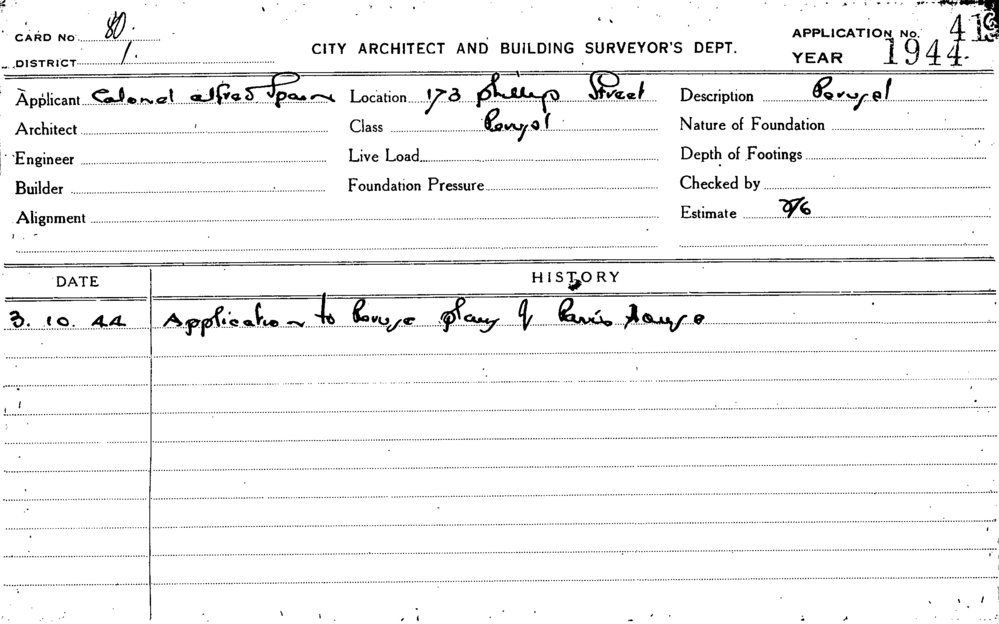 CARD No 80.
DISTRICT 1.
CITY ARCHITECT AND BUILDING SURVEYOR'S DEPT.
APPLICATION No. 419
YEAR 1944.
Applicant Colonel Alfred Spain Location 173 Phillip Street Description Perusal
Architect Class Perusal Nature of Foundation
Engineer Live Load Depth of Footings
Builder Foundation Pressure Checked by
Alignment Estimate 2/6
DATE HISTORY
3. 10. 44 Application to Peruse plans of House